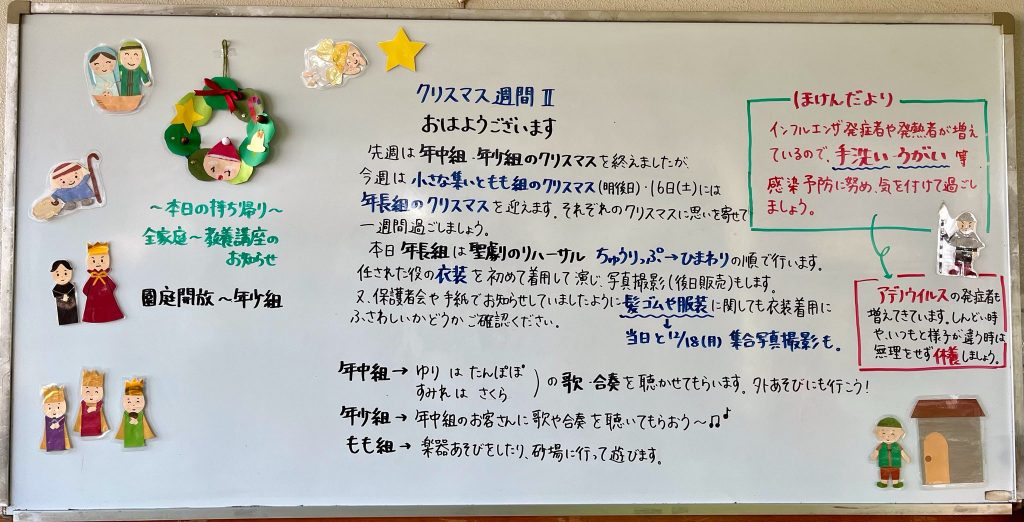 クリスマス週間Ⅱ
おはようございます
先週は年中組・年少組のクリスマスを終えましたが、
今週は小さな集いともも組のクリスマス(明後日)・16日(土)には
年長組のクリスマスを迎えます。それぞれのクリスマスに思いを寄せて
一週間過ごしましょう。
本日年長組は聖劇のリハーサル ちゅうりっぷ→ひまわりの順で行います。
任された役の衣装を初めて着用して演じ、写真撮影(後日販売)もします。
又、保護者会や手紙でお知らせしていましたように髪ゴムや服装に関しても衣装着用に
ふさわしいかどうかご確認ください。
当日と12/18(月)集合写真撮影も。
年中組→ゆり は たんぽぽ
すみれは さくら
)の歌・合奏を聴かせてもらいます。外あそびにも行こう!
年少組→年中組のお客さんに歌や合奏を聴いてもらおう〜♫♪
もも組→楽器あそびをしたり、砂場に行って遊びます。
〜本日の持ち帰り〜
全家庭〜教養講座の
お知らせ
園庭開放〜年少組
ほけんだより
インフルエンザ発症者や発熱者が増え
ているので、手洗い・うがい等
感染予防に努め、気を付けて過ごし
ましょう。
アデノウイルスの発症者も
増えてきています。しんどい時
や、いつもと様子が違う時は
無理をせず休養しましょう。